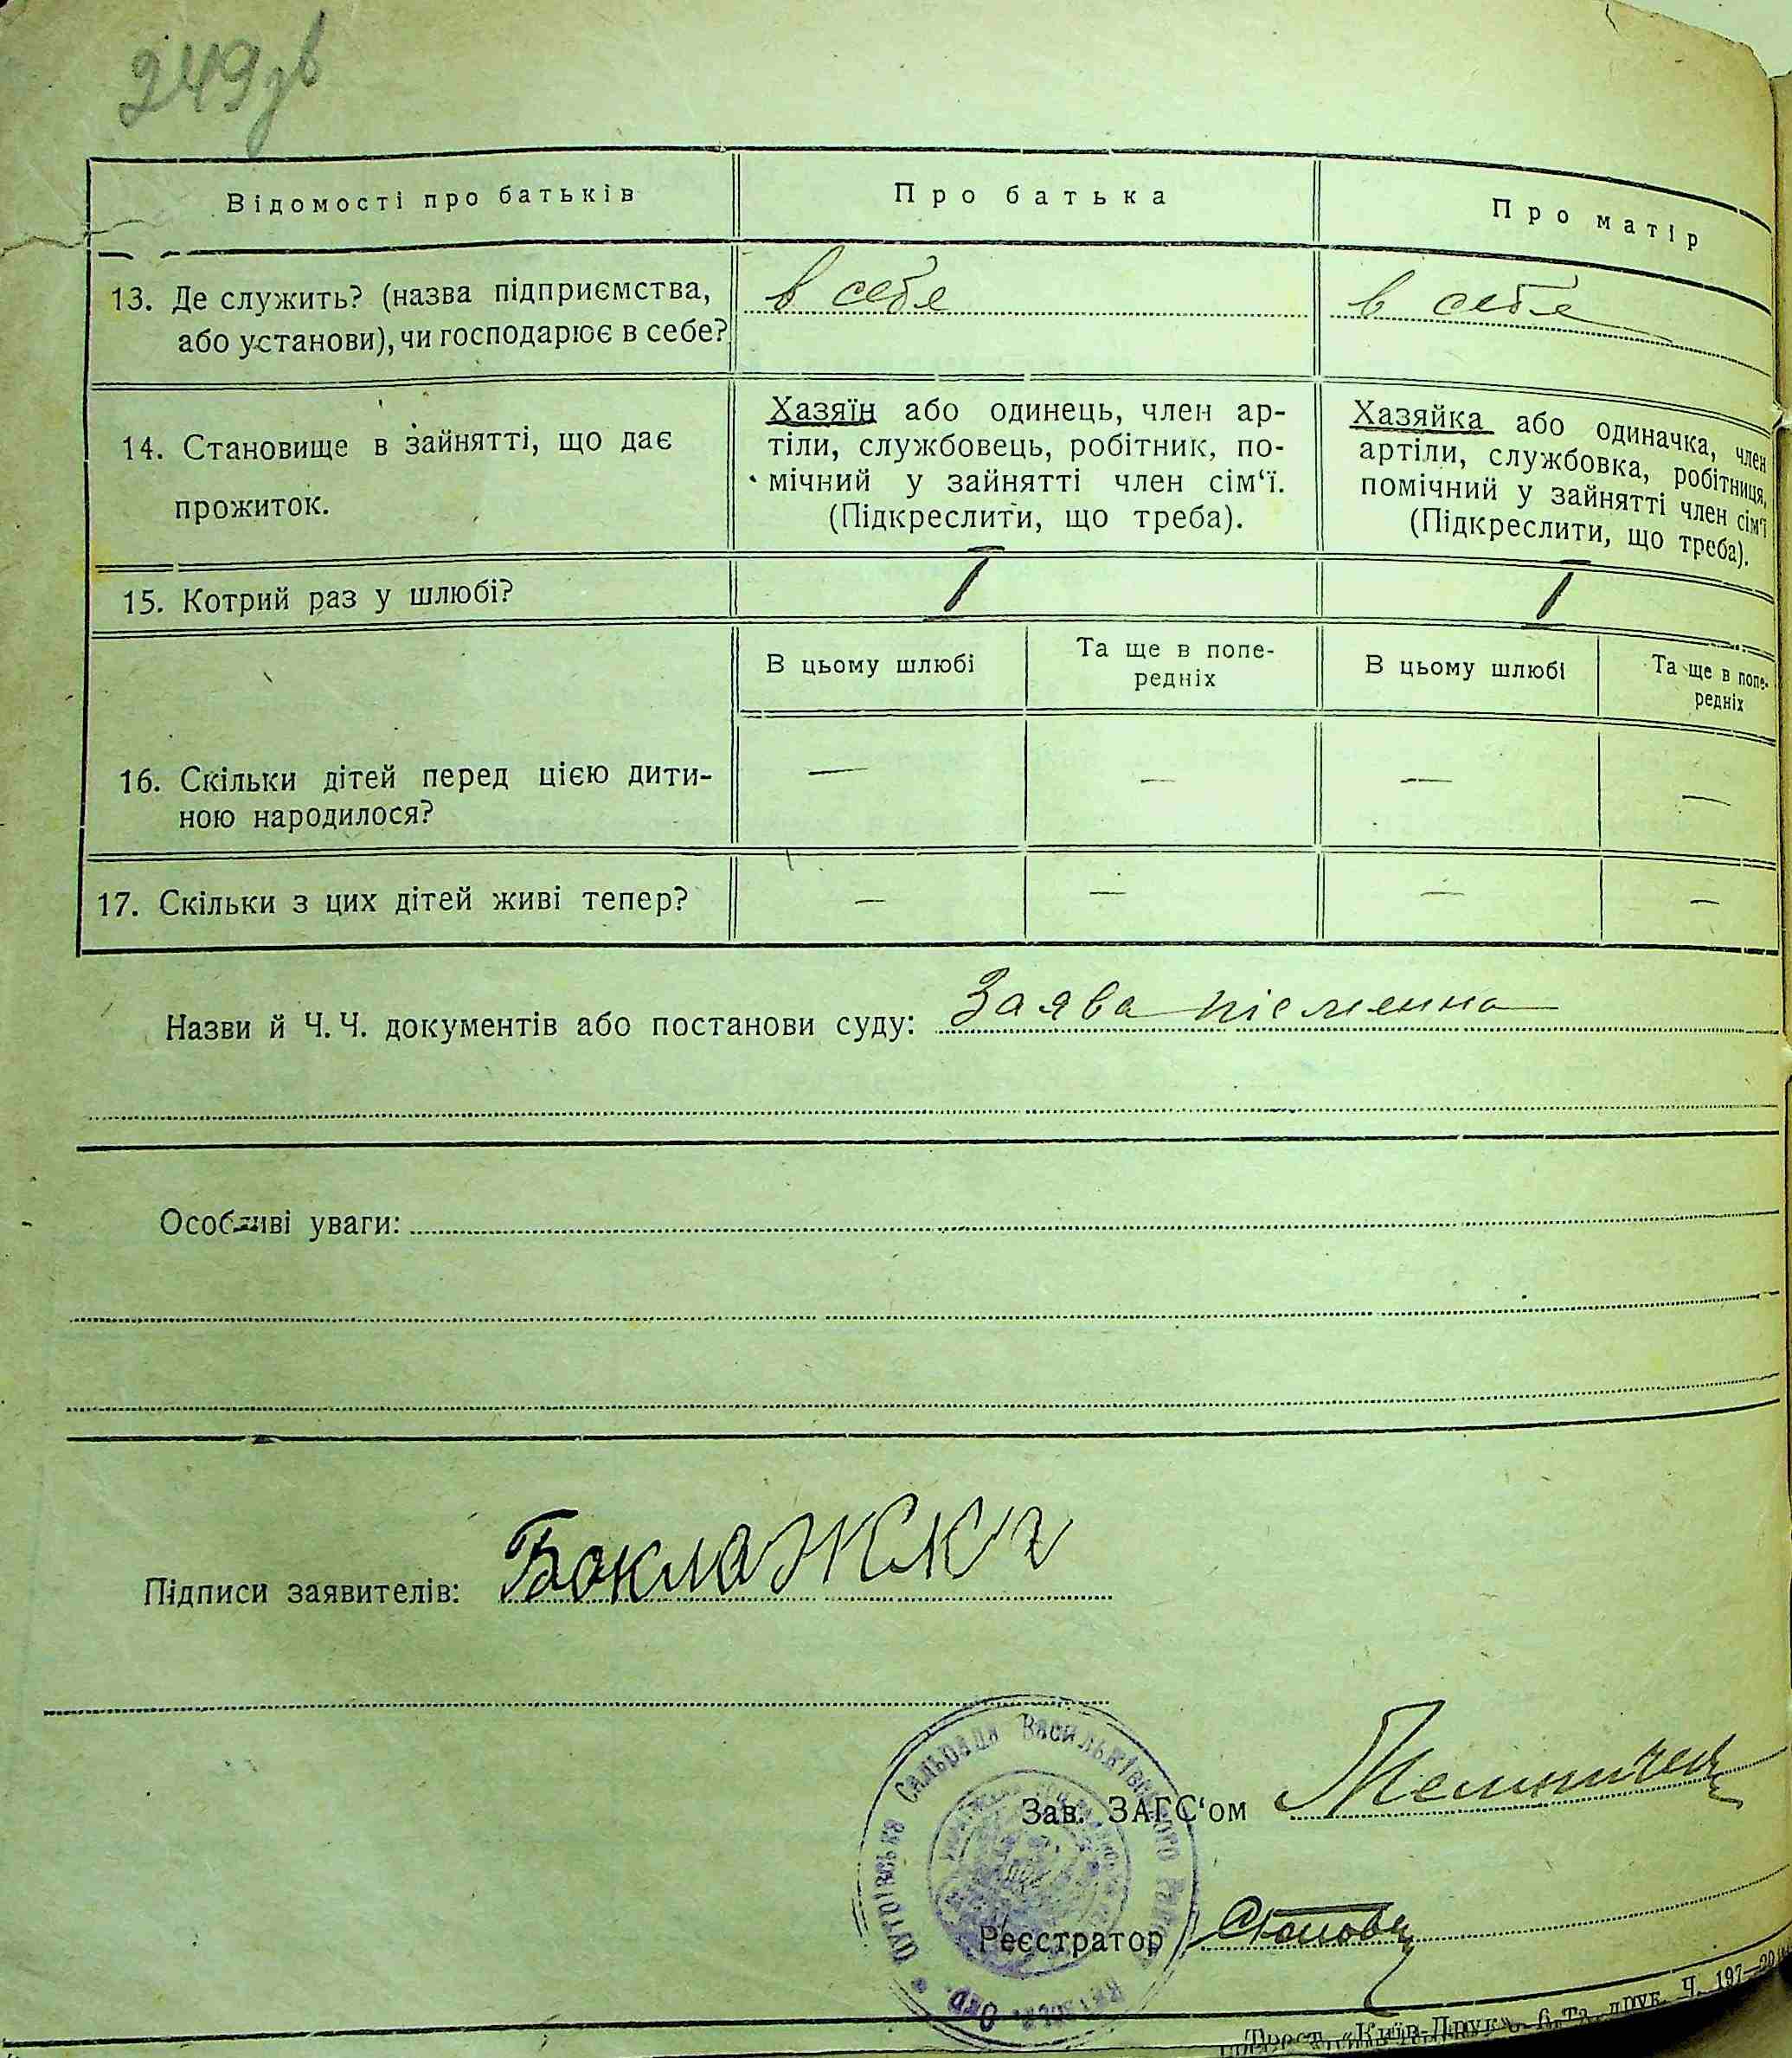 249зв
Відомості про батьків
Про батька
Про матір
13. Де служить? (назва підприємства,
або установи), чи господарює в себе?
в себе
в себе
14. Становище в зайнятті, що дає
прожиток.
Хазяїн або одинець, член ар-
тіли, службовець, робітник, по-
мічний у зайнятті член сім‘ї.
(Підкреслити, що треба).
Хазяйка або одиначка, член
артіли, службовка, робітниця,
помічний у зайнятті член сім‘ї
(Підкреслити, що треба).
15. Котрий раз у шлюбі?
I
I
В цьому шлюбі
Та ще в попе-
редніх
В цьому шлюбі
Та ще в попе-
редніх
16. Скільки дітей перед цією дити-
ною народилося?
— — — —
17. Скільки з цих дітей живі тепер?
— — — —
Назви й Ч. Ч. документів або постанови суду: Заява пісменна
Особливі уваги:
Підписи заявителів: Боклажки
Сельрада Васильківського
Окр.
Зав. ЗАГС‘ом
Реєстратор
Трест „Київ-Друк“ 6-та друк. Ч. 197